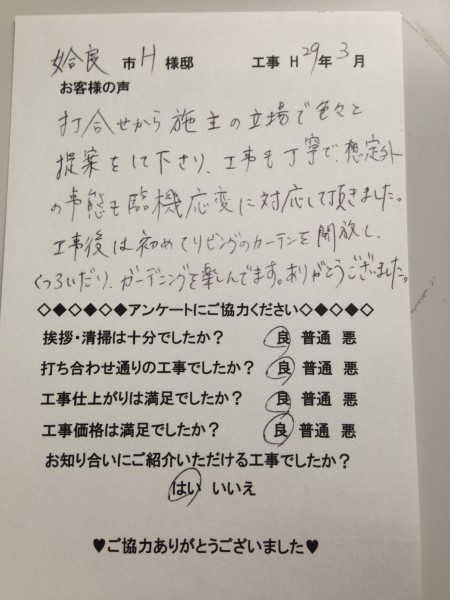 姶良 市 H 様邸 工事 H 29年 3月
お客様の声
打合せから施主の立場で色々と
提案をして下さり、工事も丁寧で、想定外
の事態も臨機応変に対応して頂きました。
工事後は初めてリビングのカーテンを開放し、
くつろいだり、ガーデニングを楽しんでます。ありがとうございました。
◇◆◇◆◇◆アンケートにご協力ください◆◇◆◇◆◇
挨拶・清掃は十分でしたか? 良 普通 悪
打ち合わせ通りの工事でしたか? 良 普通 悪
工事仕上がりは満足でしたか? 良 普通 悪
工事価格は満足でしたか? 良 普通 悪
お知り合いにご紹介いただける工事でしたか?
はい いいえ
♥ご協力ありがとうございました♥